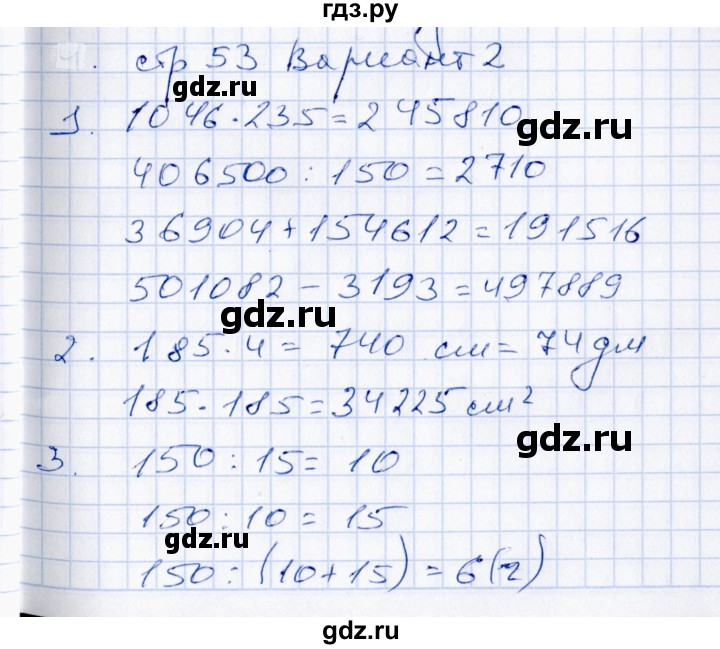 гдз.ру
стр 53 Вариант 2
gdz.ru
1. 1046 · 235 = 245810
gdz.ru
406500 : 150 = 2710
36904 + 154612 = 191516
501082 - 3193 = 497889
gdz.ru
2. 185 · 4 = 740 см = 74 дм
185 · 185 = 34225 см²
gdz.ru
3. 150 : 15 = 10
150 : 10 = 15
gdz.ru
150 : (10 + 15) = 6 (ч)
gdz.ru